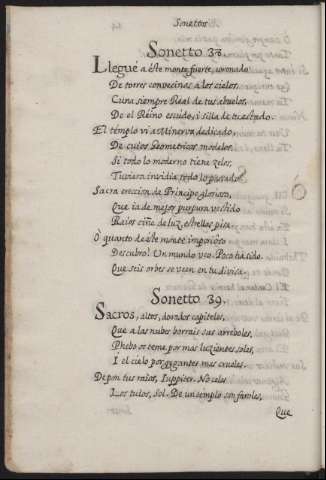 Sonettos
Sonetto 38
Llegué a éste monte fuerte, coronado
De torres convecinas a los cielos,
Cuna siempre Real de tus abuelos,
De el Reino escudo, i silla de tu estado.
El témplo vi a Minerva dedicado,
De cuios Geometricos modelos
Si todo lo moderno tiene zelos,
Tuviera invidia todo lo passado.
Sacra ereccion de Principe glorioso,
Que ia de mejor purpura vestido
Raios ciñe de luz, estrellas pisa.
Ò quanto de éste monte imperioso
Descubro! Un mundo veo. Poco ha sido.
Que seis orbes se veen en tu divisa.
Sonetto 39.
Sacros, altos, dorados capiteles,
Que a las nubes borrais sus arreboles,
Phebo os teme por mas luzientes soles,
I el cielo por gigantes mas crueles.
Depon tus raios, Iuppiter. No zeles
Los tuios, Sol. De un templo son faroles,
Que